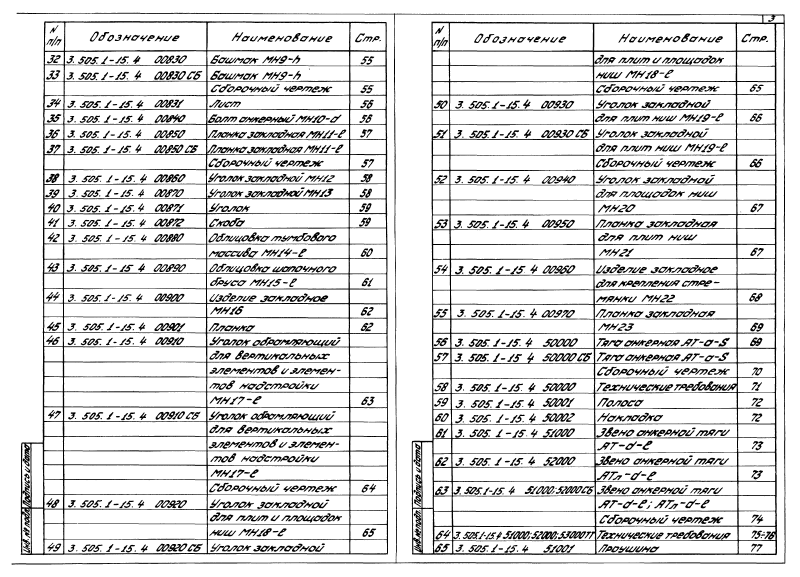 3
N п/п Обозначение Наименование Стр.
32 3.505.1-15.4 00830 Башмак МН9-h 55
33 3.505.1-15.4 00830 СБ Башмак МН9-h
Сборочный чертеж 55
34 3.505.1-15.4 00831 Лист 56
35 3.505.1-15.4 00840 Болт анкерный МН10-d 56
36 3.505.1-15.4 00850 Планка закладная МН11-ℓ 57
37 3.505.1-15.4 00850 СБ Планка закладная МН11-ℓ
Сборочный чертеж 57
38 3.505.1-15.4 00860 Уголок закладной МН12 58
39 3.505.1-15.4 00870 Уголок закладной МН13 58
40 3.505.1-15.4 00871 Уголок 59
41 3.505.1-15.4 00872 Скоба 59
42 3.505.1-15.4 00880 Облицовка тумбового
массива МН14-ℓ 60
43 3.505.1-15.4 00890 Облицовка шапочного
бруса МН15-ℓ 61
44 3.505.1-15.4 00900 Изделие закладное
МН16 62
45 3.505.1-15.4 00901 Планка 62
46 3.505.1-15.4 00910 Уголок обрамляющий
для вертикальных
элементов и элемен-
тов надстройки
МН17-ℓ 63
47 3.505.1-15.4 00910 СБ Уголок обрамляющий
для вертикальных
элементов и элемен-
тов надстройки
МН17-ℓ
Сборочный чертеж 64
48 3.505.1-15.4 00920 Уголок закладной
для плит и площадок
ниш МН18-ℓ 65
49 3.505.1-15.4 00920 СБ Уголок закладной
Инв.№ подл. Подпись и дата
N п/п Обозначение Наименование Стр.
для плит и площадок
ниш МН18-ℓ
Сборочный чертеж 65
50 3.505.1-15.4 00930 Уголок закладной
для плит ниш МН19-ℓ 66
51 3.505.1-15.4 00930 СБ Уголок закладной
для плит ниш МН19-ℓ
Сборочный чертеж 66
52 3.505.1-15.4 00940 Уголок закладной
для площадок ниш
МН20 67
53 3.505.1-15.4 00950 Планка закладная
для плит ниш
МН21 67
54 3.505.1-15.4 00960 Изделие закладное
для крепления стре-
мянки МН22 68
55 3.505.1-15.4 00970 Планка закладная
МН23 69
56 3.505.1-15.4 50000 Тяга анкерная АТ-а-S 69
57 3.505.1-15.4 50000 СБ Тяга анкерная АТ-а-S
Сборочный чертеж 70
58 3.505.1-15.4 50000 Технические требования 71
59 3.505.1-15.4 50001 Полоса 72
60 3.505.1-15.4 50002 Накладка 72
61 3.505.1-15.4 51000 Звено анкерной тяги
АТ-d-ℓ 73
62 3.505.1-15.4 52000 Звено анкерной тяги
АТл-d-ℓ 73
63 3.505.1-15.4 51000;52000 СБ Звено анкерной тяги
АТ-d-ℓ; АТл-d-ℓ
Сборочный чертеж 74
64 3.505.1-15.4 51000;52000;53000ТТ Технические требования 75-76
65 3.505.1-15.4 51001 Проушина 77
Инв.№ подл. Подпись и дата